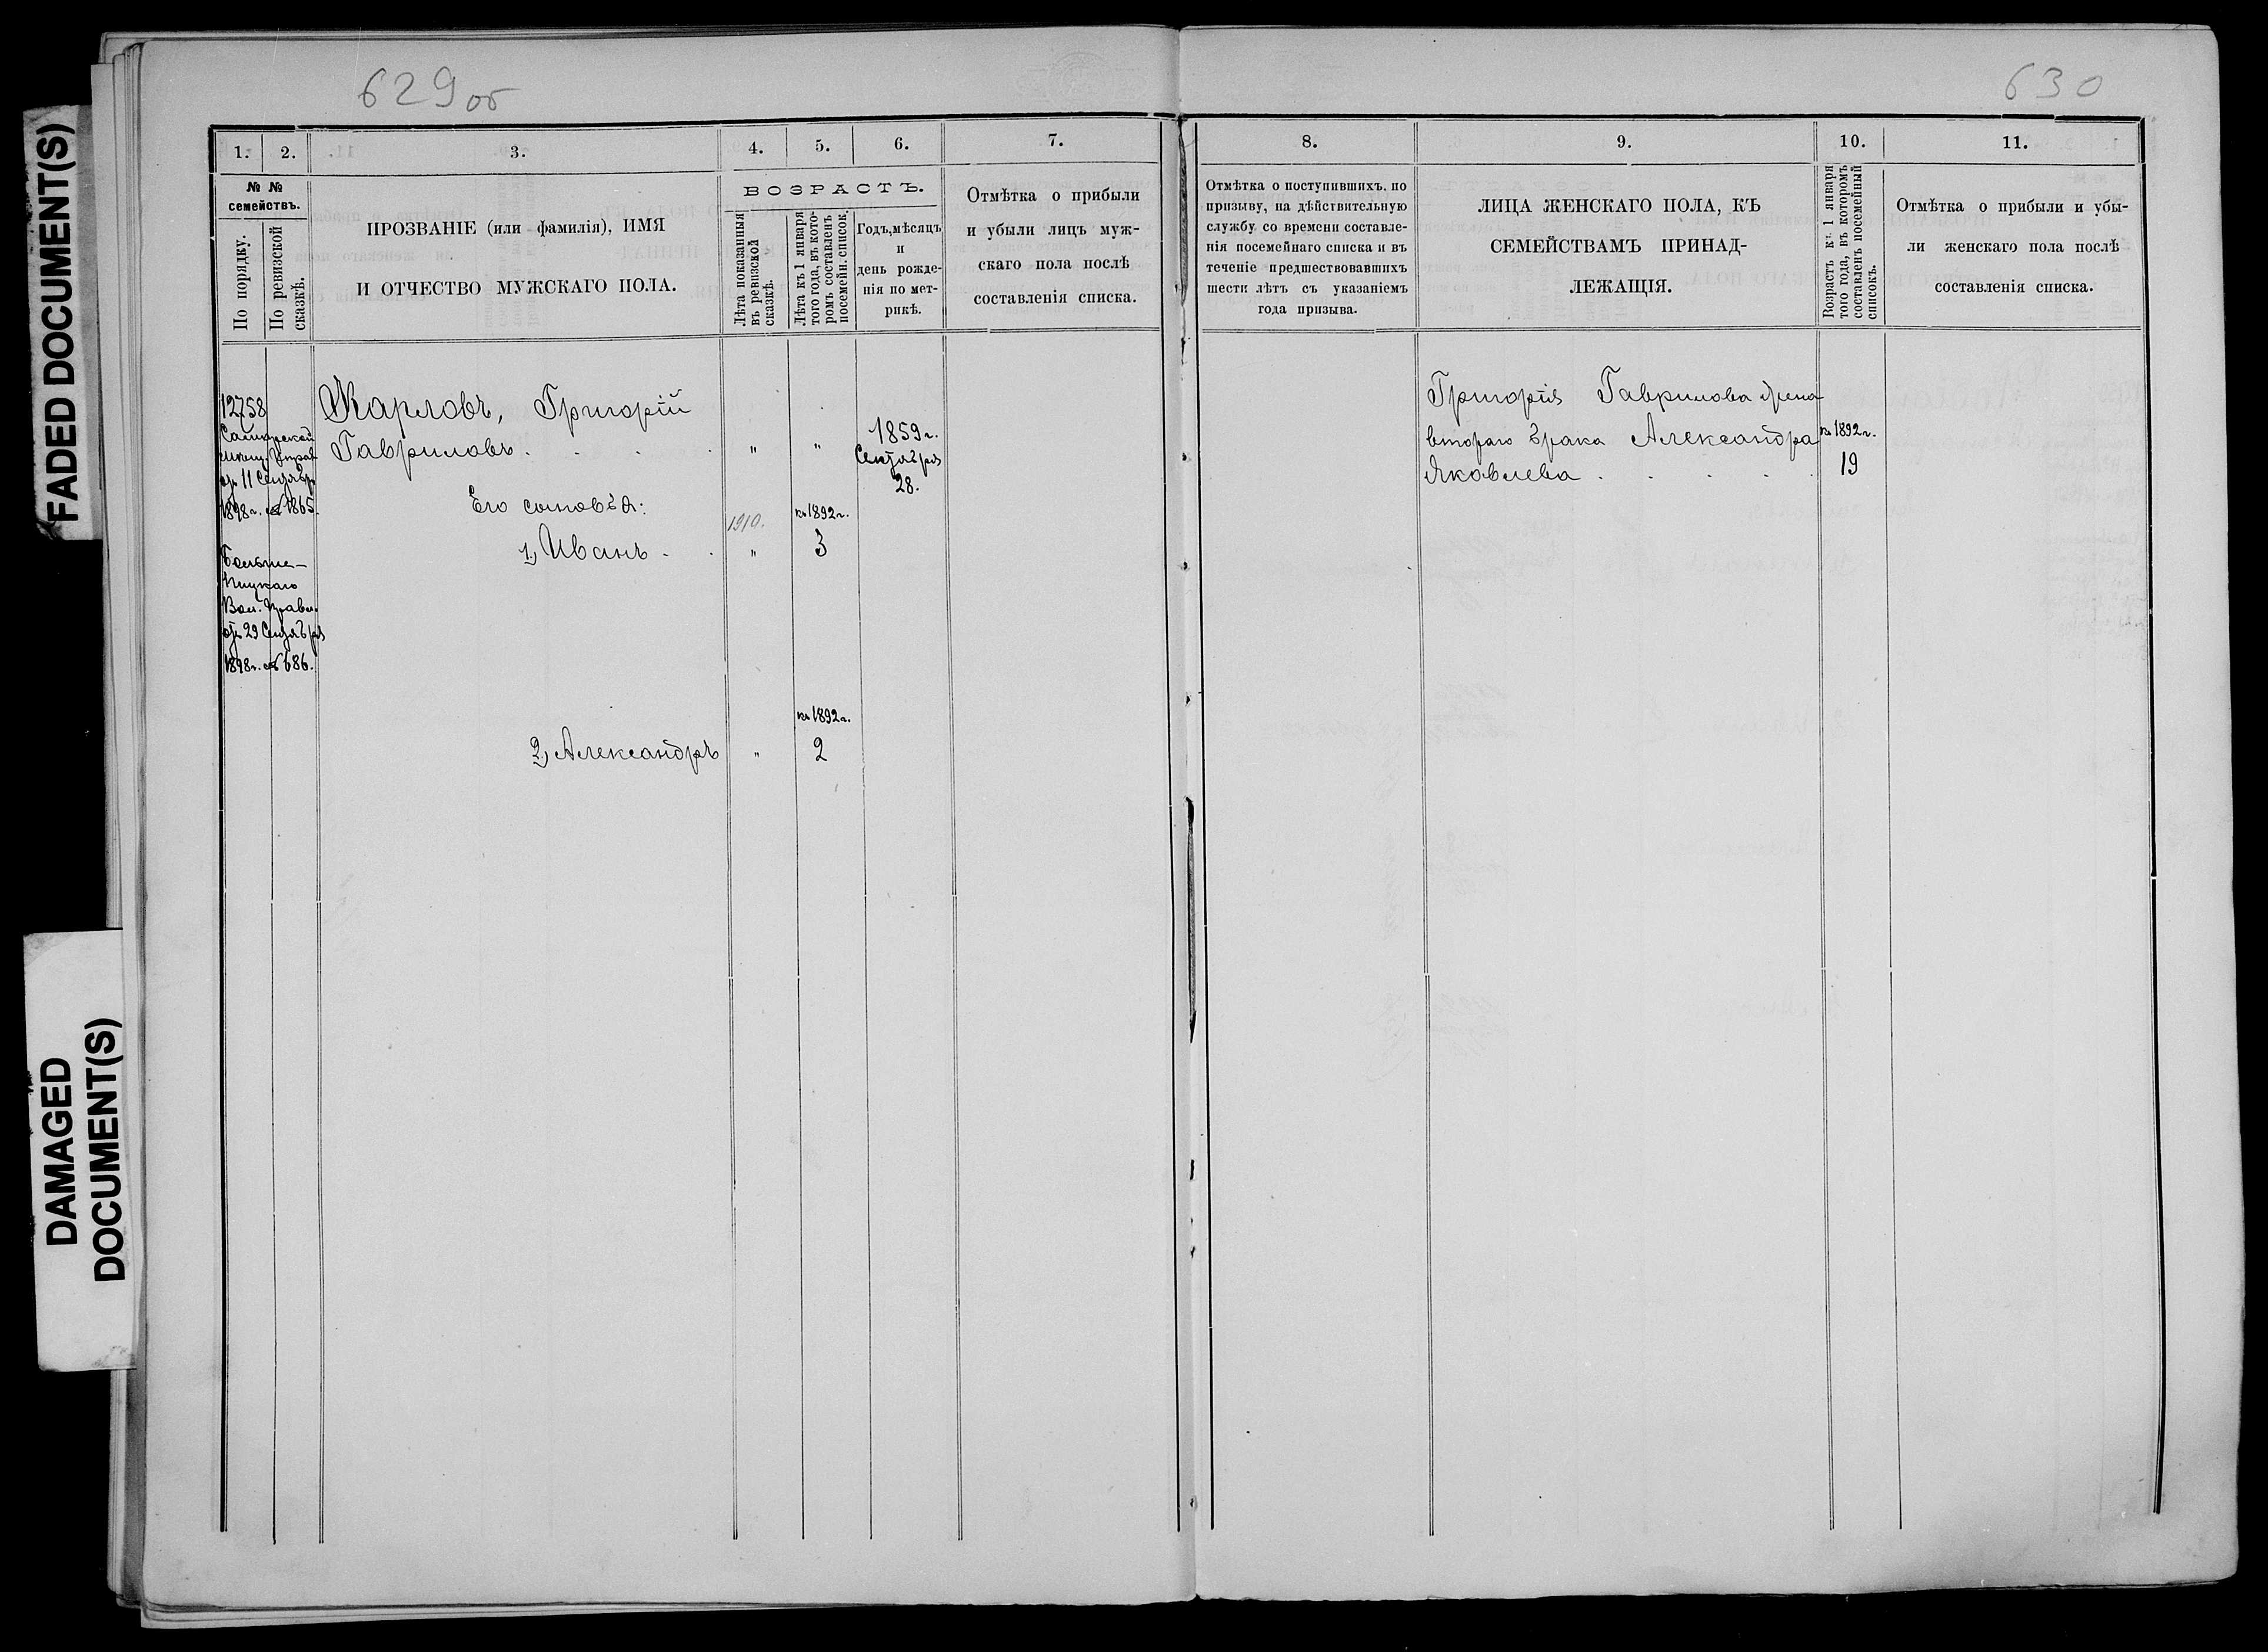 FADED DOCUMENT(S)
DAMAGED
DOCUMENT(S)
629об
1. 2. 3. 4. 5. 6. 7.
№ №
семействъ.
По порядку.
По ревизской
сказкѣ.
ПРОЗВАНІЕ (или фамилія), ИМЯ
И ОТЧЕСТВО МУЖСКАГО ПОЛА.
ВОЗРАСТЪ.
Лѣта показанныя
въ ревизской
сказкѣ.
Лѣта къ 1 января
того года, въ кото-
ромъ составленъ
посемейн. список.
Годъ, мѣсяцъ
и
день рожде-
нія по мет-
рикѣ.
Отмѣтка о прибыли
и убыли лицъ муж-
скаго пола послѣ
составленія списка.
12758
Самарской
Мѣщ. Управ
отъ 11 Сентябр
1898 г. № 1865.
Больше-
Вол. Правл.
отъ 29 Сентября
1898 г. № 686.
Карловъ, Григорій
Гавриловъ . . . . " " 1859 г.
Сентября
28.
Его сыновья:
1910. къ 1892 г.
1, Иванъ . . " 3
къ 1892 г.
2, Александръ " 2
630
8. 9. 10. 11.
Отмѣтка о поступившихъ, по
призыву, на дѣйствительную
службу со времени составле-
нія посемейнаго списка и въ
теченіе предшествовавшихъ
шести лѣтъ съ указаніемъ
года призыва.
ЛИЦА ЖЕНСКАГО ПОЛА, КЪ
СЕМЕЙСТВАМЪ ПРИНАД-
ЛЕЖАЩІЯ.
Возрастъ къ 1 января
того года, въ которомъ
составленъ посемейный
списокъ.
Отмѣтка о прибыли и убы-
ли женскаго пола послѣ
составленія списка.
Григорія Гаврилова жена
втораго брака Александра къ 1892 г.
Яковлева . . . . . 19